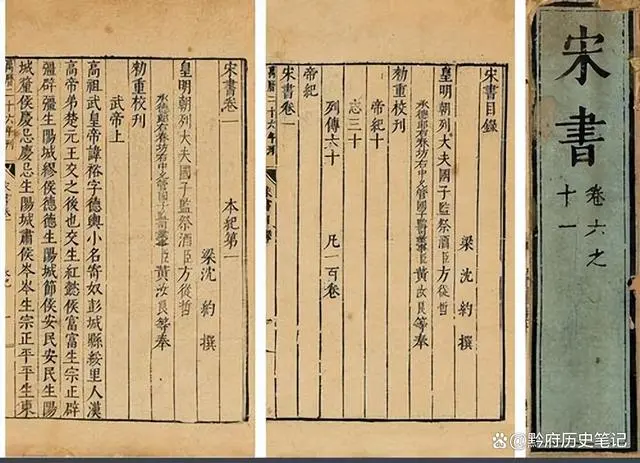 宋書
卷六之
十一
宋書目錄
梁沈約撰
皇明朝列大夫國子監祭酒臣方從哲
承德郎右春坊右中允管國子監司業事臣黃汝良等奉
勑重校刊
帝紀十
志三十
列傳六十
凡一百卷
帝紀
宋書卷一
二十六年刊
宋書卷一
本紀第一
梁沈約撰
皇明朝列大夫國子監祭酒臣方從哲
承德郎右春坊右中允管國子監司業事臣黃汝良等奉
勑重校刊
武帝上
高祖武皇帝諱裕字德輿小名寄奴彭城縣綏里人漢
高帝弟楚元王交之後也交生紅懿侯富富生宗正辟
彊辟彊生陽城繆侯德德生陽城節侯安民安民生陽
城釐侯慶忌慶忌生陽城肅侯岑岑生宗正平平生東
二十六年刊
黔府历史笔记